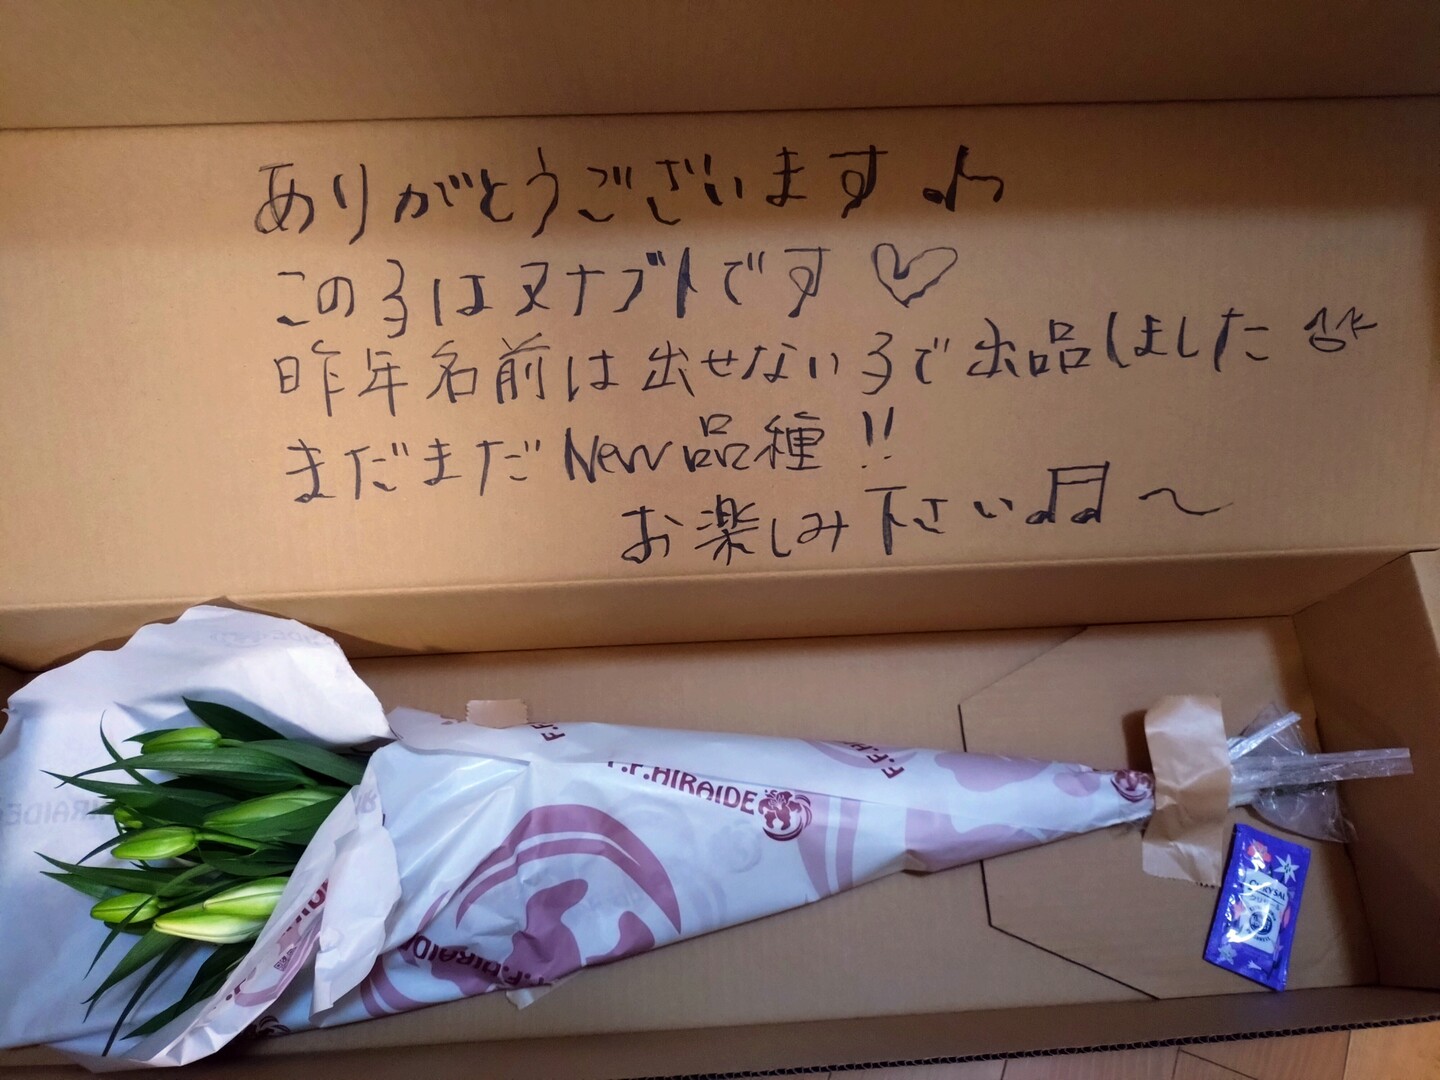 ありがとうございます♪
この子はヌナブトです♡
昨年名前は出せない子で出品しました
まだまだNew品種!!
お楽しみ下さい♬〜
F.F.HIRAIDE
F.F.HIRAIDE
CRYSTAL